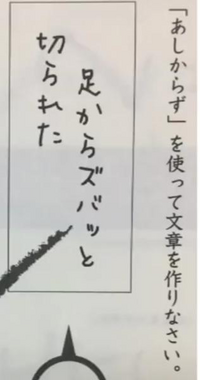 「あしからず」を使って文章を作りなさい。
足からズバッと
切られた